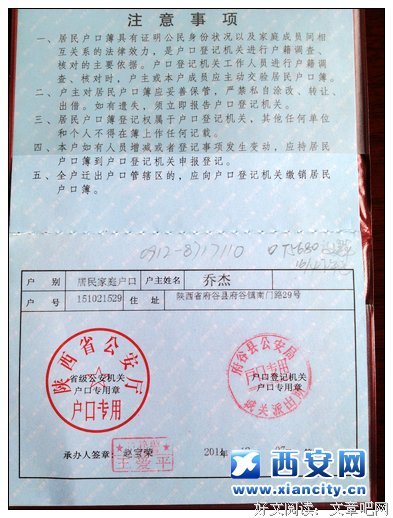 注意事项
一、居民户口簿具有证明公民身份状况以及家庭成员间相
互关系的法律效力，是户口登记机关进行户籍调查、
核对的主要依据。户口登记机关工作人员进行户籍调
查、核对时，户主或本户成员应主动交验居民户口簿。
二、户主对居民户口簿应妥善保管，严禁私自涂改、转让、
出借。如有遗失，须立即报告户口登记机关。
三、居民户口簿登记权属于户口登记机关，其他任何单位
和个人不得在簿上作任何记载。
四、本户如有人员增减或者登记事项发生变动，应持居民
户口簿到户口登记机关申报登记。
五、全户迁出户口管辖区的，应向户口登记机关缴销居民
户口簿。
0912-8717110
户 别 居民家庭户口 户主姓名 乔杰
户 号 151021529 住 址 陕西省府谷县府谷镇南门路29号
陕西省公安厅
省级公安机关
户口专用章
户口专用
府谷县公安局
户口专用
户口登记机关
户口专用章
城关派出所
承办人签章：赵宝荣
王爱平
西安网
www.xiancity.cn
好文阅读：文章吧网